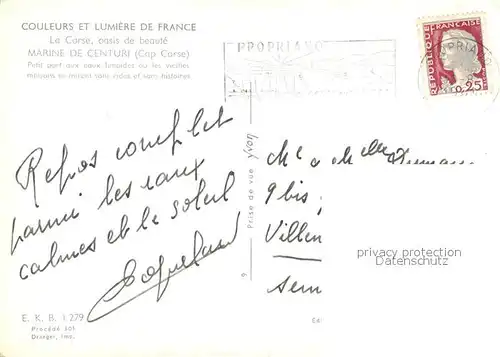 COULEURS ET LUMIÈRE DE FRANCE
La Corse, oasis de beauté
MARINE DE CENTURI (Cap Corse)
Petit port aux eaux limpides ou les vieilles
maisons se mirent sans rides et sans histoires.
PROPRIANO
RÉPUBLIQUE FRANÇAISE
0,25
Repos complet
parmi les eaux
calmes et le soleil
Prise de vue
9 bis
Villen
Sem
privacy protection
Datenschutz
E. K. B. 1.279
Procédé 301
Draeger, Imp.